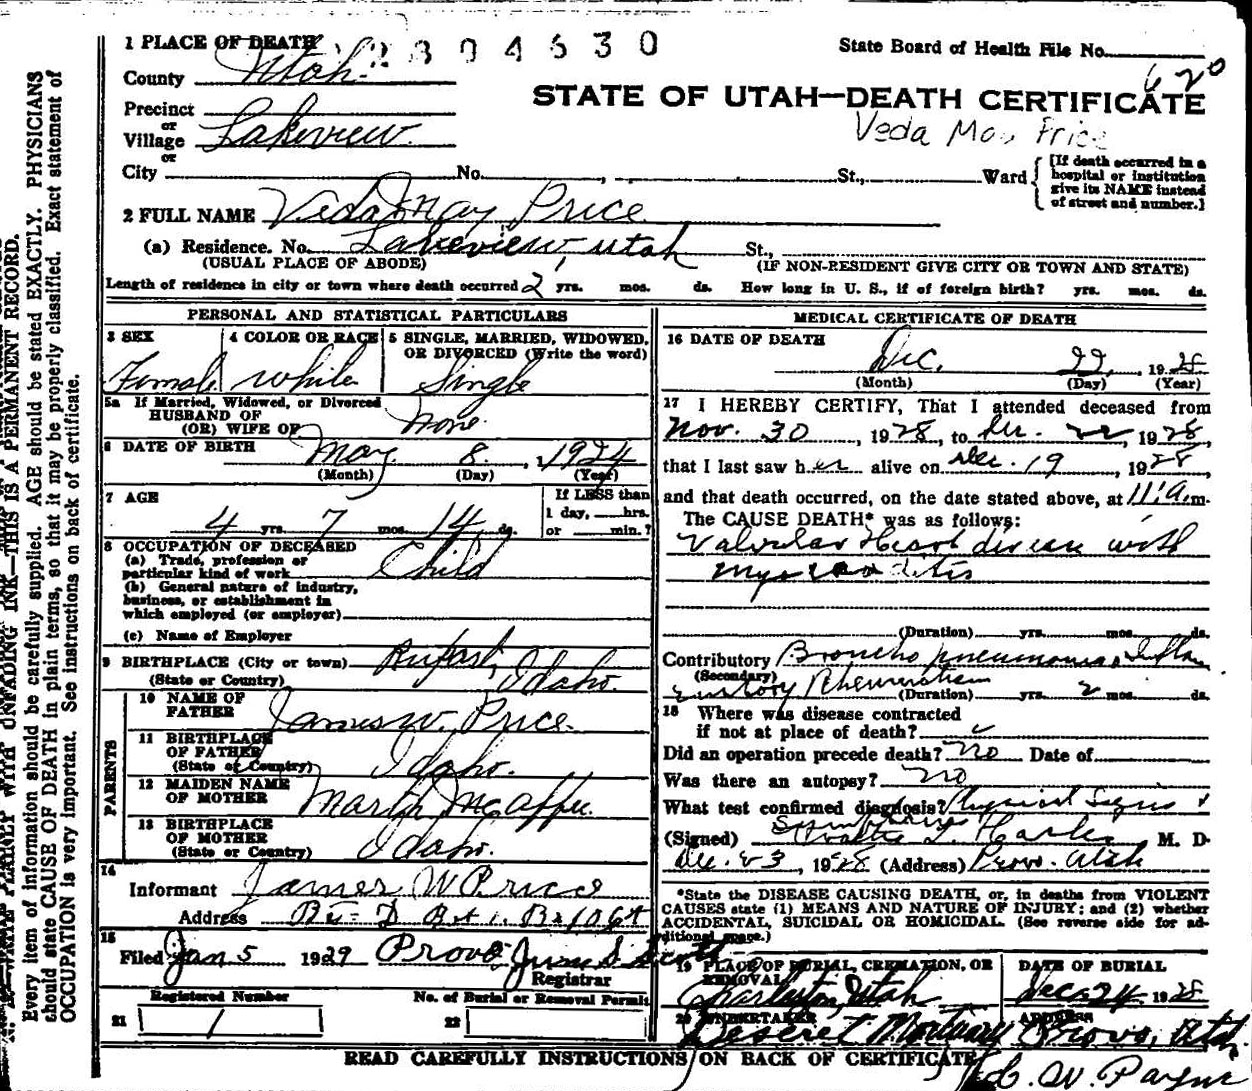 1 PLACE OF DEATH
2804630
State Board of Health File No.
County Utah
620
STATE OF UTAH—DEATH CERTIFICATE
Precinct
or
Village Lakeview
or
Veda May Price
City No. St., Ward
[If death occurred in a
hospital or institution
give its NAME instead
of street and number.]
2 FULL NAME Veda May Price
(a) Residence. No. Lakeview, Utah St.,
(USUAL PLACE OF ABODE) (IF NON-RESIDENT GIVE CITY OR TOWN AND STATE)
Length of residence in city or town where death occurred 2 yrs. mos. ds. How long in U. S., if of foreign birth? yrs. mos. ds.
PERSONAL AND STATISTICAL PARTICULARS
3 SEX 4 COLOR OR RACE 5 SINGLE, MARRIED, WIDOWED,
OR DIVORCED (Write the word)
Female white Single
5a If Married, Widowed, or Divorced
HUSBAND OF
(OR) WIFE OF None
6 DATE OF BIRTH May 8, 1924
(Month) (Day) (Year)
7 AGE
If LESS than
1 day, hrs.
or min.?
4 yrs. 7 mos. 14 ds.
8 OCCUPATION OF DECEASED
(a) Trade, profession or
particular kind of work Child
(b) General nature of industry,
business, or establishment in
which employed (or employer)
(c) Name of Employer
9 BIRTHPLACE (City or town)
(State or Country) Idaho.
PARENTS
10 NAME OF
FATHER James W. Price
11 BIRTHPLACE
OF FATHER
(State or Country) Idaho.
12 MAIDEN NAME
OF MOTHER McAffee
13 BIRTHPLACE
OF MOTHER
(State or Country) Idaho.
14
Informant James W Price
Address
15
Filed Jan 5 1929 Provo
Registrar
Registered Number No. of Burial or Removal Permit
21 1 22
MEDICAL CERTIFICATE OF DEATH
16 DATE OF DEATH Dec. 22, 1928
(Month) (Day) (Year)
17 I HEREBY CERTIFY, That I attended deceased from
Nov. 30, 1928, to Dec. 22, 1928,
that I last saw her alive on Dec. 19, 1928
and that death occurred, on the date stated above, at 11 a.m.
The CAUSE DEATH* was as follows:
Valvular Heart disease with
myocarditis
(Duration) yrs. mos. ds.
Contributory Broncho pneumonia, Inflam
(Secondary)
Rheumatism (Duration) yrs. 2 mos. ds.
18 Where was disease contracted
if not at place of death?
Did an operation precede death? No Date of
Was there an autopsy? No
What test confirmed diagnosis? Physical Signs &
Symptoms
(Signed) M. D.
Dec. 23, 1928 (Address) Provo. Utah
*State the DISEASE CAUSING DEATH, or, in deaths from VIOLENT
CAUSES state (1) MEANS AND NATURE OF INJURY; and (2) whether
ACCIDENTAL, SUICIDAL OR HOMICIDAL. (See reverse side for ad-
ditional space.)
19 PLACE OF BURIAL, CREMATION, OR
REMOVAL
DATE OF BURIAL
Charleston, Utah Dec 24 1928
20 UNDERTAKER ADDRESS
Deseret Mortuary Provo, Utah.
READ CAREFULLY INSTRUCTIONS ON BACK OF CERTIFICATE
WRITE PLAINLY WITH UNFADING INK—THIS IS A PERMANENT RECORD.
Every item of information should be carefully supplied. AGE should be stated EXACTLY. PHYSICIANS
should state CAUSE OF DEATH in plain terms, so that it may be properly classified. Exact statement of
OCCUPATION is very important. See instructions on back of certificate.